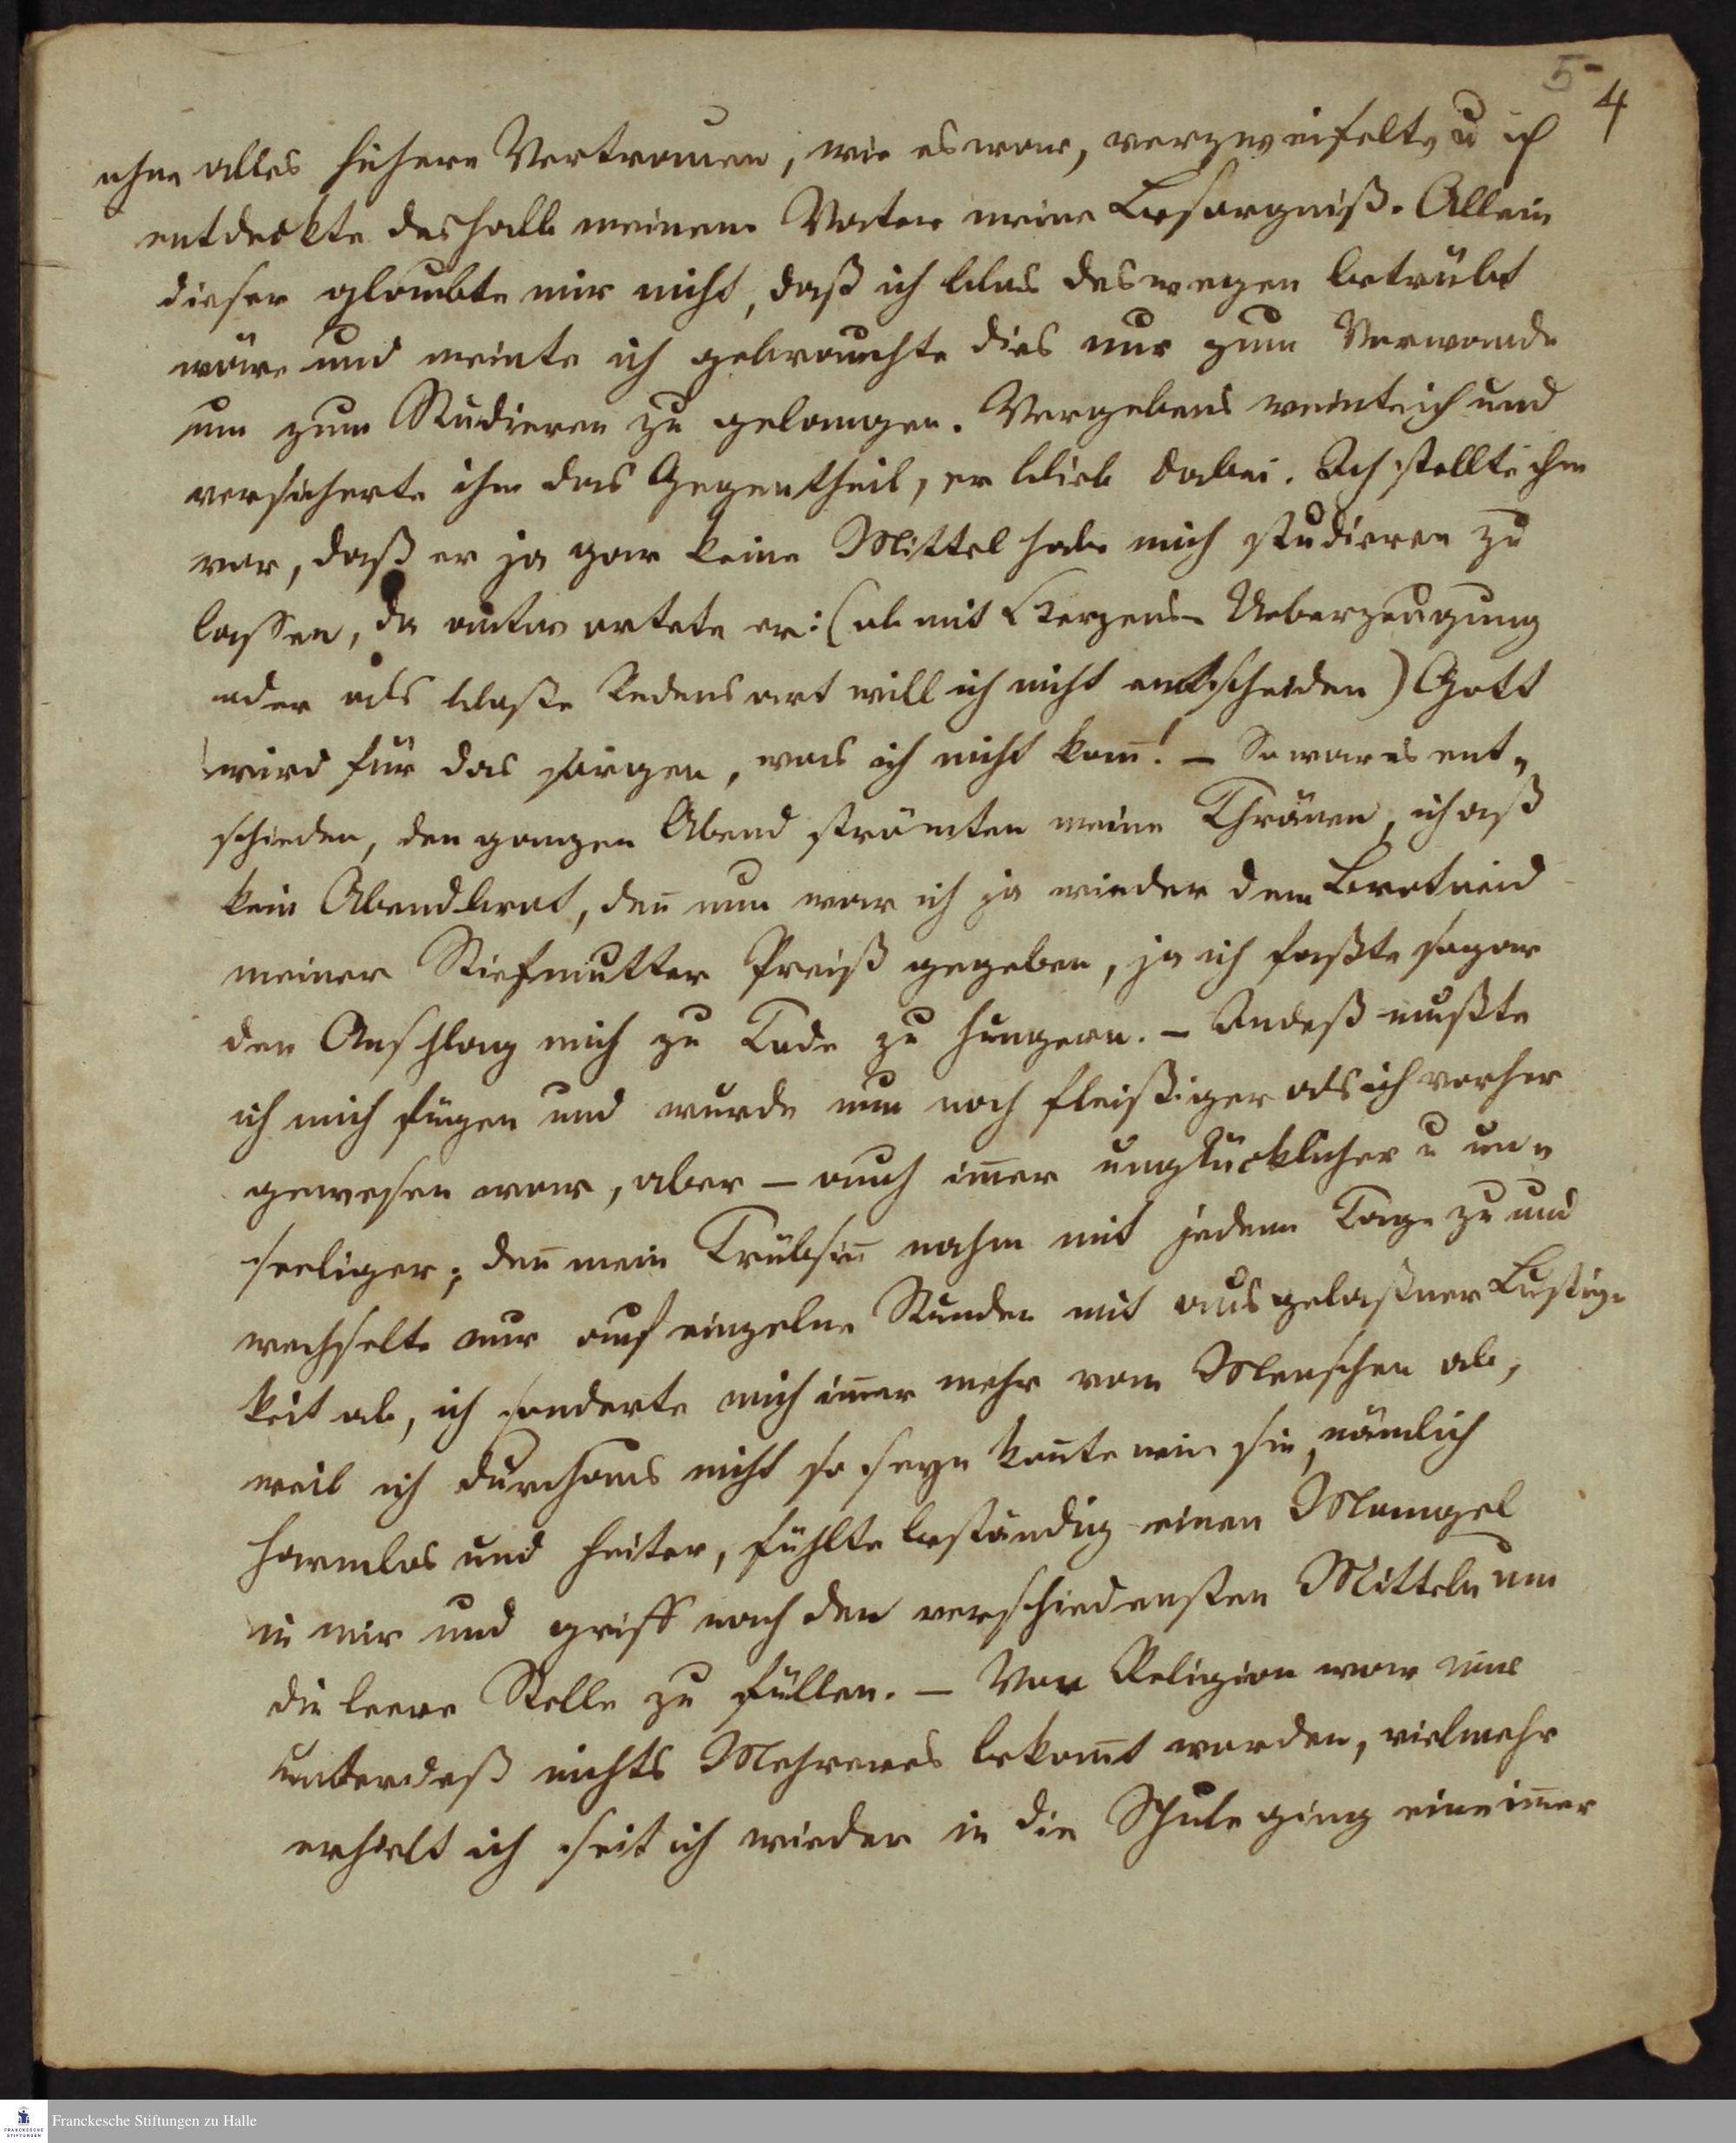 5 4
ohne alles höhere Vertrauen, wie es war, verzweifelte, u ich
entdeckte deshalb meinem Vater meine Besorgniß. Allein
dieser glaubte mir nicht, daß ich blos deswegen betrübt
wäre und meinte ich gebrauchte dies nur zum Vorwande
um zum Studieren zu gelangen. Vergebens weinte ich und
versicherte ihm das Gegentheil, er blieb dabei. Ich stellte ihm
vor, daß er ja gar keine Mittel habe mich studieren zu
lassen, da antwortete er: (ob mit Herzens-Ueberzeugung
oder als bloße Redensart will ich nicht entscheiden) Gott
wird für das sorgen, was ich nicht kan̄! – So war es ent-
schieden, den ganzen Abend strömten meine Thränen, ich aß
kein Abendbrot, den̄ nun war ich ja wieder dem Brotneid
meiner Stiefmutter Preiß gegeben, ja ich faßte sogar
den Anschlag mich zu Tode zu hungern. – Indeß mußte
ich mich fügen und wurde nun noch fleißiger als ich vorher
gewesen war, aber – auch im̄er unglücklicher u un-
seeliger; den̄ mein Trübsin̄ nahm mit jedem Tage zu und
wechselte nur auf einzelne Stunden mit ausgelaßner Lustig-
keit ab, ich sonderte mich im̄er mehr von Menschen ab,
weil ich durchaus nicht so seyn kon̄te wie sie, nämlich
harmlos und heiter, fühlte beständig einen Mangel
in mir und griff nach den verschiedensten Mitteln um
die leere Stelle zu füllen. – Von Religion war mir
unterdeß nichts Mehreres bekan̄t worden, vielmehr
erhielt ich seit ich wieder in die Schule ging eine im̄er
Franckesche Stiftungen zu Halle
FRANCKESCHE STIFTUNGEN